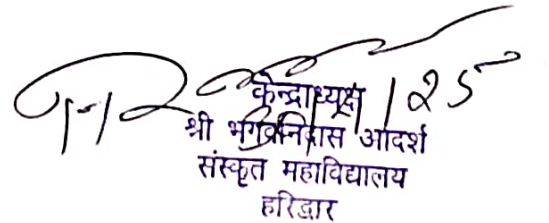 केन्द्राध्यक्ष
श्री भगवानदास आदर्श
संस्कृत महाविद्यालय
हरिद्वार